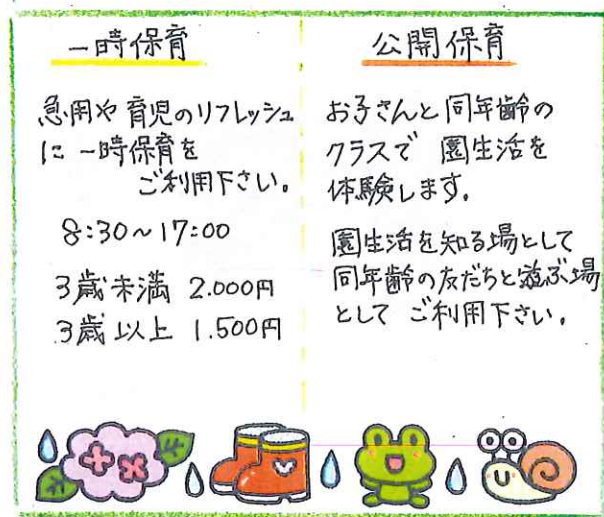 一時保育
急用や育児のリフレッシュ
に 一時保育を
ご利用下さい。
8:30～17:00
3歳未満 2.000円
3歳以上 1.500円
公開保育
お子さんと同年齢の
クラスで 園生活を
体験します。
園生活を知る場として
同年齢の友だちと遊ぶ場
として ご利用下さい。